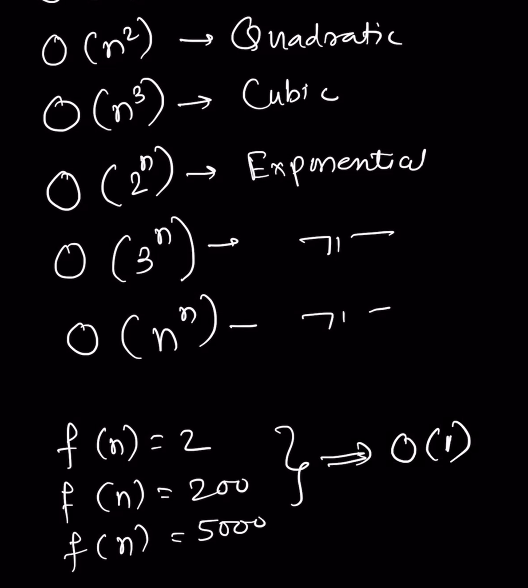 O(n²) → Quadratic
O(n³) → Cubic
O(2ⁿ) → Exponential
O(3ⁿ) → —〃—
O(nⁿ) – —〃—
f(n) = 2
f(n) = 200 } ⇒ O(1)
f(n) = 5000